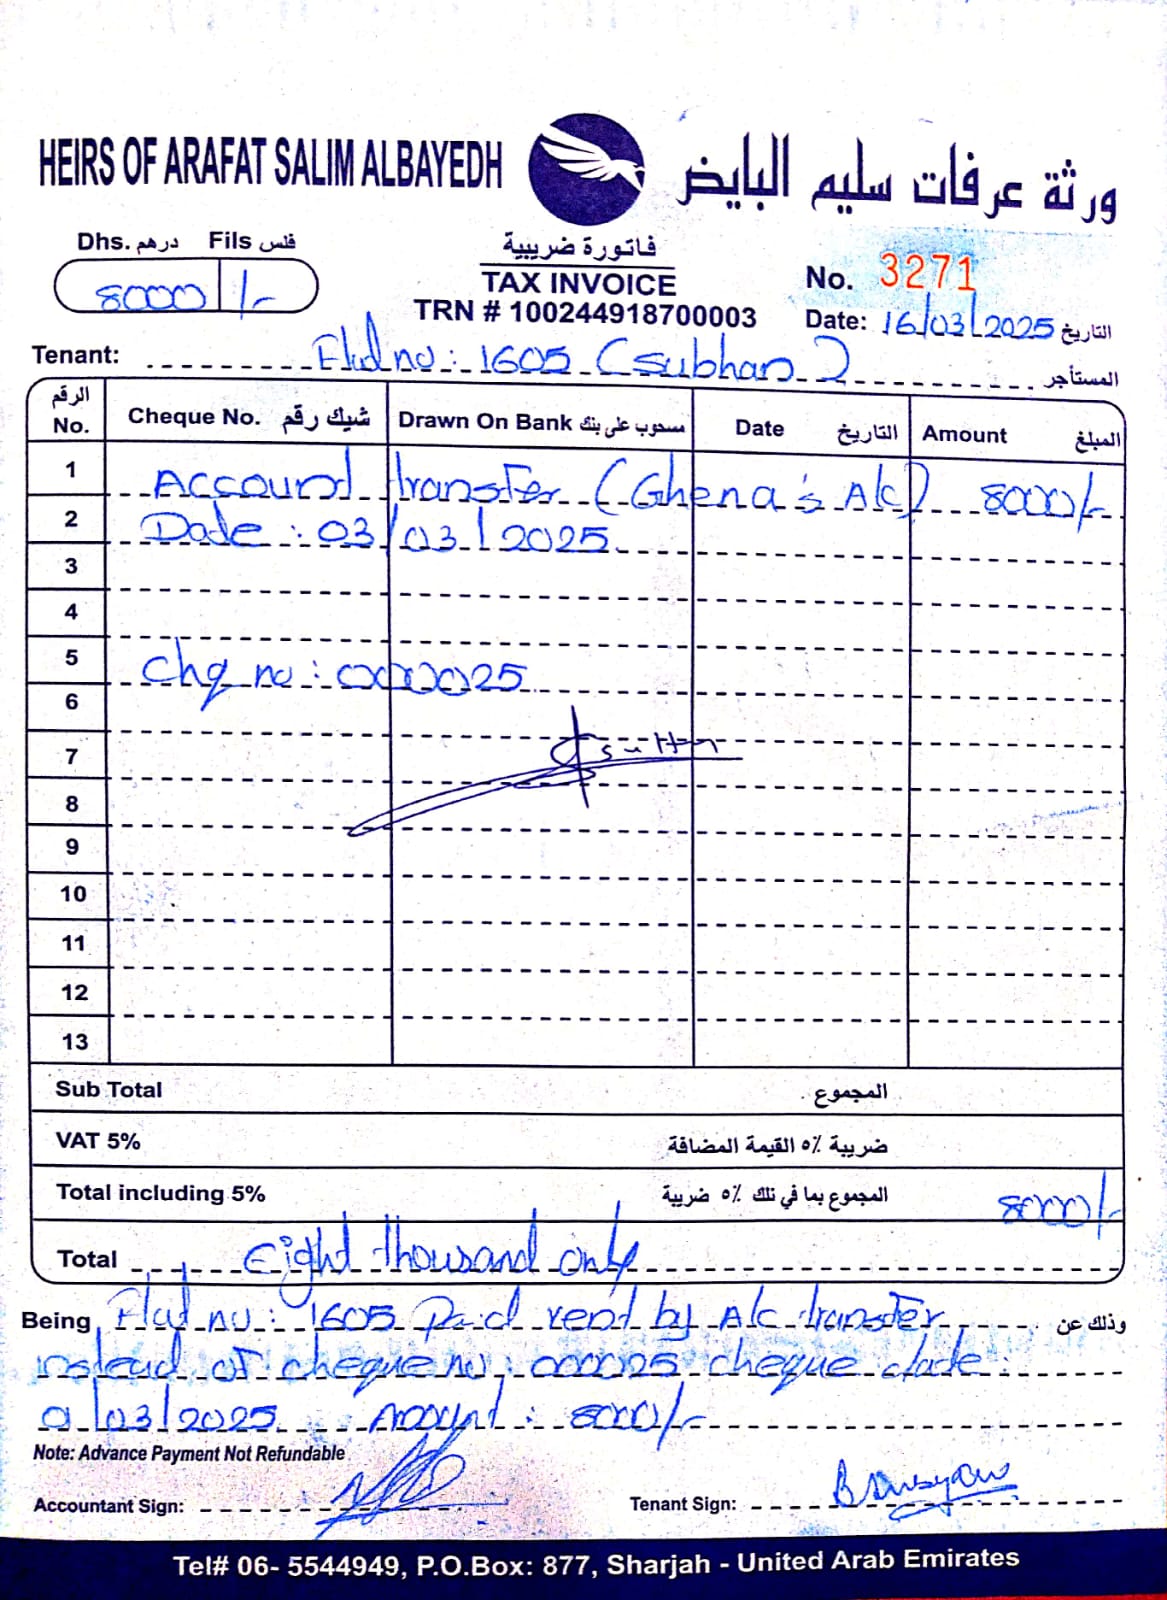 HEIRS OF ARAFAT SALIM ALBAYEDH
ورثة عرفات سليم البايض
Dhs. درهم Fils فلس
8000 /-
فاتورة ضريبية
TAX INVOICE
TRN # 100244918700003
No. 3271
Date: 16/03/2025 التاريخ
Tenant: Flat no: 1605 (subhan) المستأجر
الرقم No. Cheque No. شيك رقم Drawn On Bank مسحوب على بنك Date التاريخ Amount المبلغ
1 Account transfer (Ghena's A/c) 8000/-
2 Date: 03/03/2025
3
4
5 Chq no: 000025
6
7
8
9
10
11
12
13
Sub Total المجموع
VAT 5% ضريبة ٥٪ القيمة المضافة
Total including 5% المجموع بما في تلك ٥٪ ضريبة 8000/-
Total Eight thousand only
Being Flat no: 1605 Paid rent by A/c transfer وذلك عن
instead of cheque no: 000025 cheque date:
01/03/2025 Amount: 8000/-
Note: Advance Payment Not Refundable
Accountant Sign: Tenant Sign:
Tel# 06- 5544949, P.O.Box: 877, Sharjah - United Arab Emirates